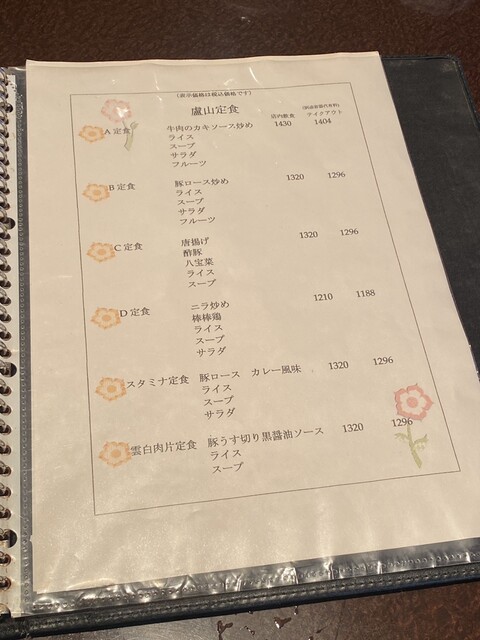 (表示価格は税込価格です)
盧山定食 店内飲食 テイクアウト
A定食 牛肉のカキソース炒め 1430 1404
ライス
スープ
サラダ
フルーツ
B定食 豚ロース炒め 1320 1296
ライス
スープ
サラダ
フルーツ
C定食 唐揚げ 1320 1296
酢豚
八宝菜
ライス
スープ
D定食 ニラ炒め 1210 1188
棒棒鶏
ライス
スープ
サラダ
スタミナ定食 豚ロース カレー風味 1320 1296
ライス
スープ
サラダ
雲白肉片定食 豚うす切り黒醤油ソース 1320 1296
ライス
スープ